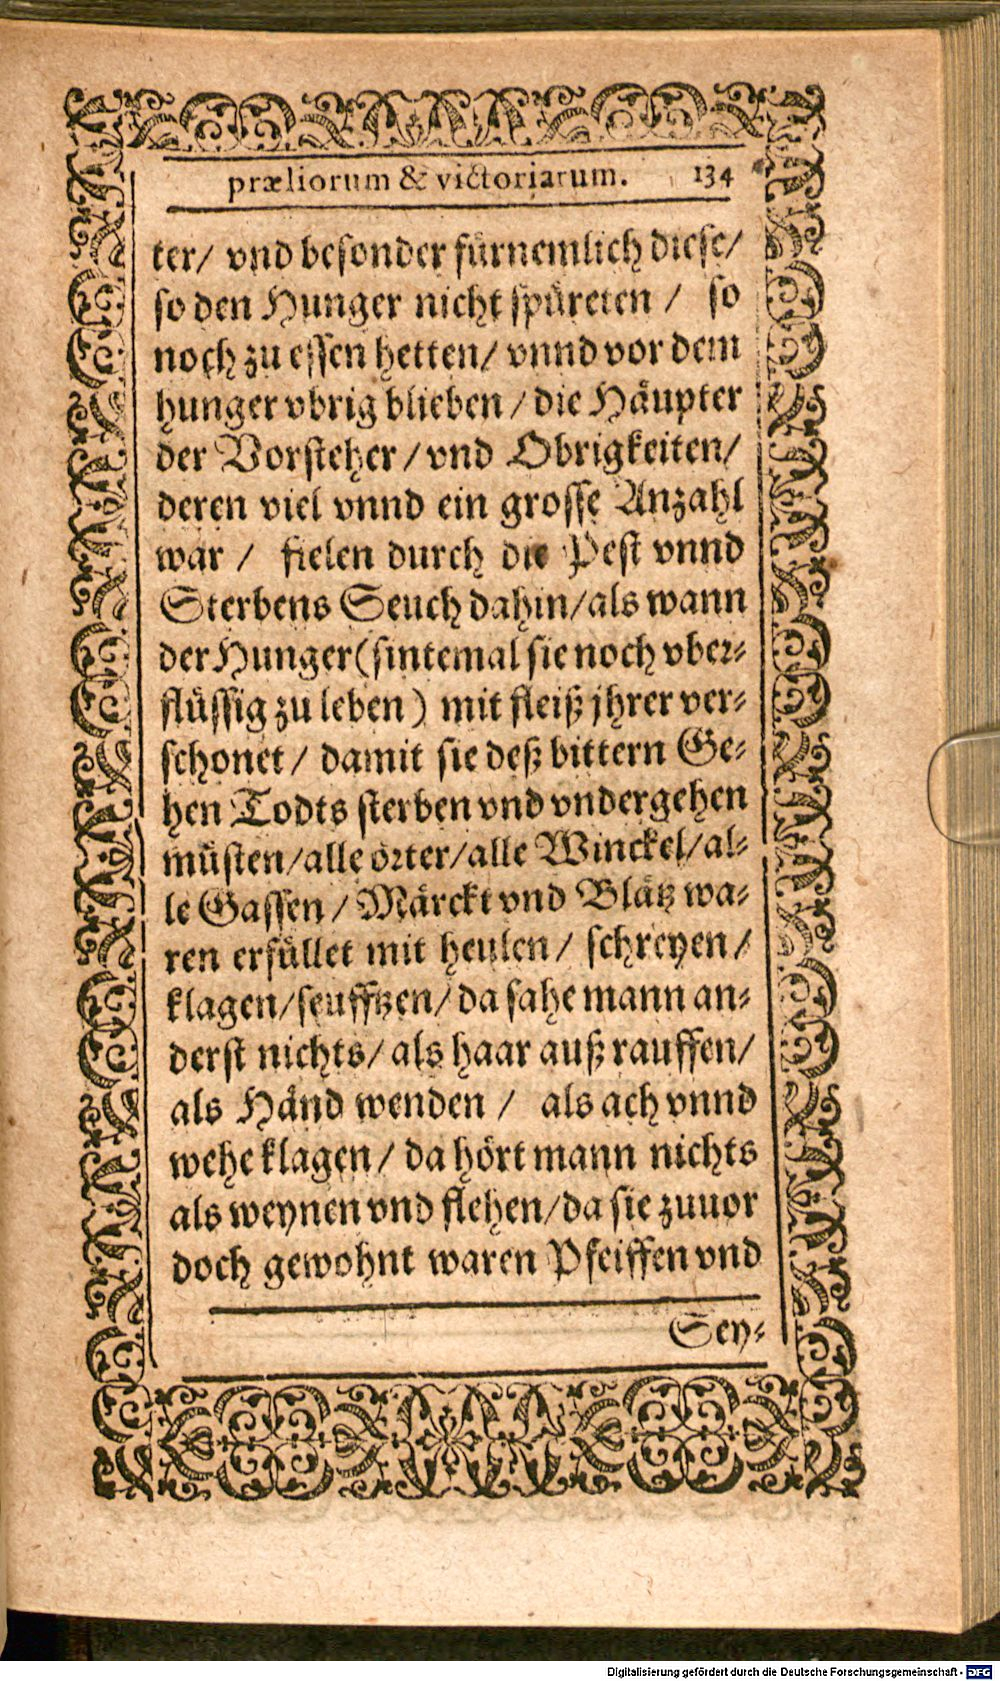 præliorum & victoriarum. 134
ter/ vnd besonder fürnemlich diese/
so den Hunger nicht spüreten / so
noch zu essen hetten/ vnnd vor dem
hunger vbrig blieben / die Häupter
der Vorsteher / vnd Obrigkeiten/
deren viel vnnd ein grosse Anzahl
war / fielen durch die Pest vnnd
Sterbens Seuch dahin/als wann
der Hunger (sintemal sie noch vber-
flüssig zu leben) mit fleiß jhrer ver-
schonet / damit sie deß bittern Ge-
hen Todts sterben vnd vndergehen
müsten/alle örter/alle Winckel/al-
le Gassen / Märckt vnd Blätz wa-
ren erfüllet mit heulen/ schreyen/
klagen/seufftzen/ da sahe mann an-
derst nichts/ als haar auß rauffen/
als Händ wenden / als ach vnnd
wehe klagen/ da hört mann nichts
als weynen vnd flehen/da sie zuuor
doch gewohnt waren Pfeiffen vnd
Sey-
Digitalisierung gefördert durch die Deutsche Forschungsgemeinschaft - DFG